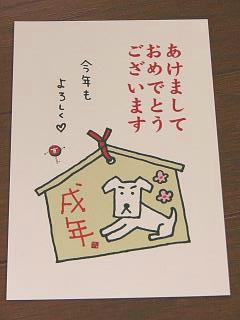 あけまして
おめでとう
ございます
今年も
よろしく♡
戌年